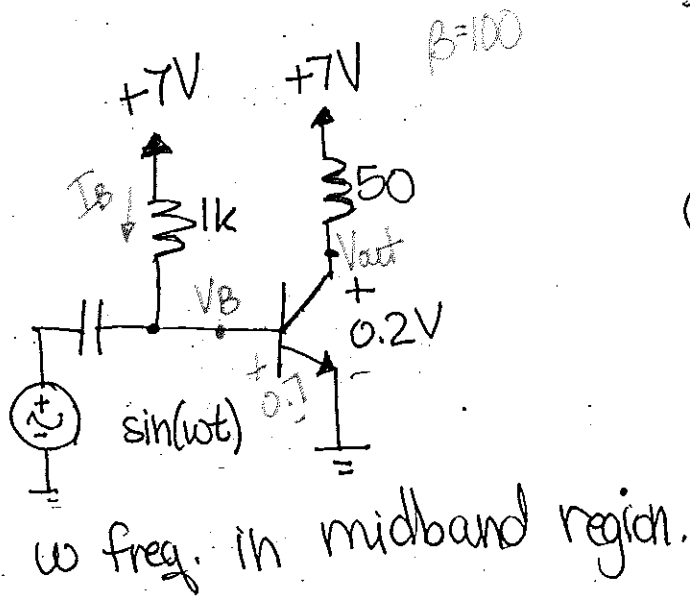 β=100
+7V
+7V
I_B
1k
50
Vout
V_B
+
0.2V
-
+
0.7
-
+
~
-
sin(ωt)
ω freq. in midband region.